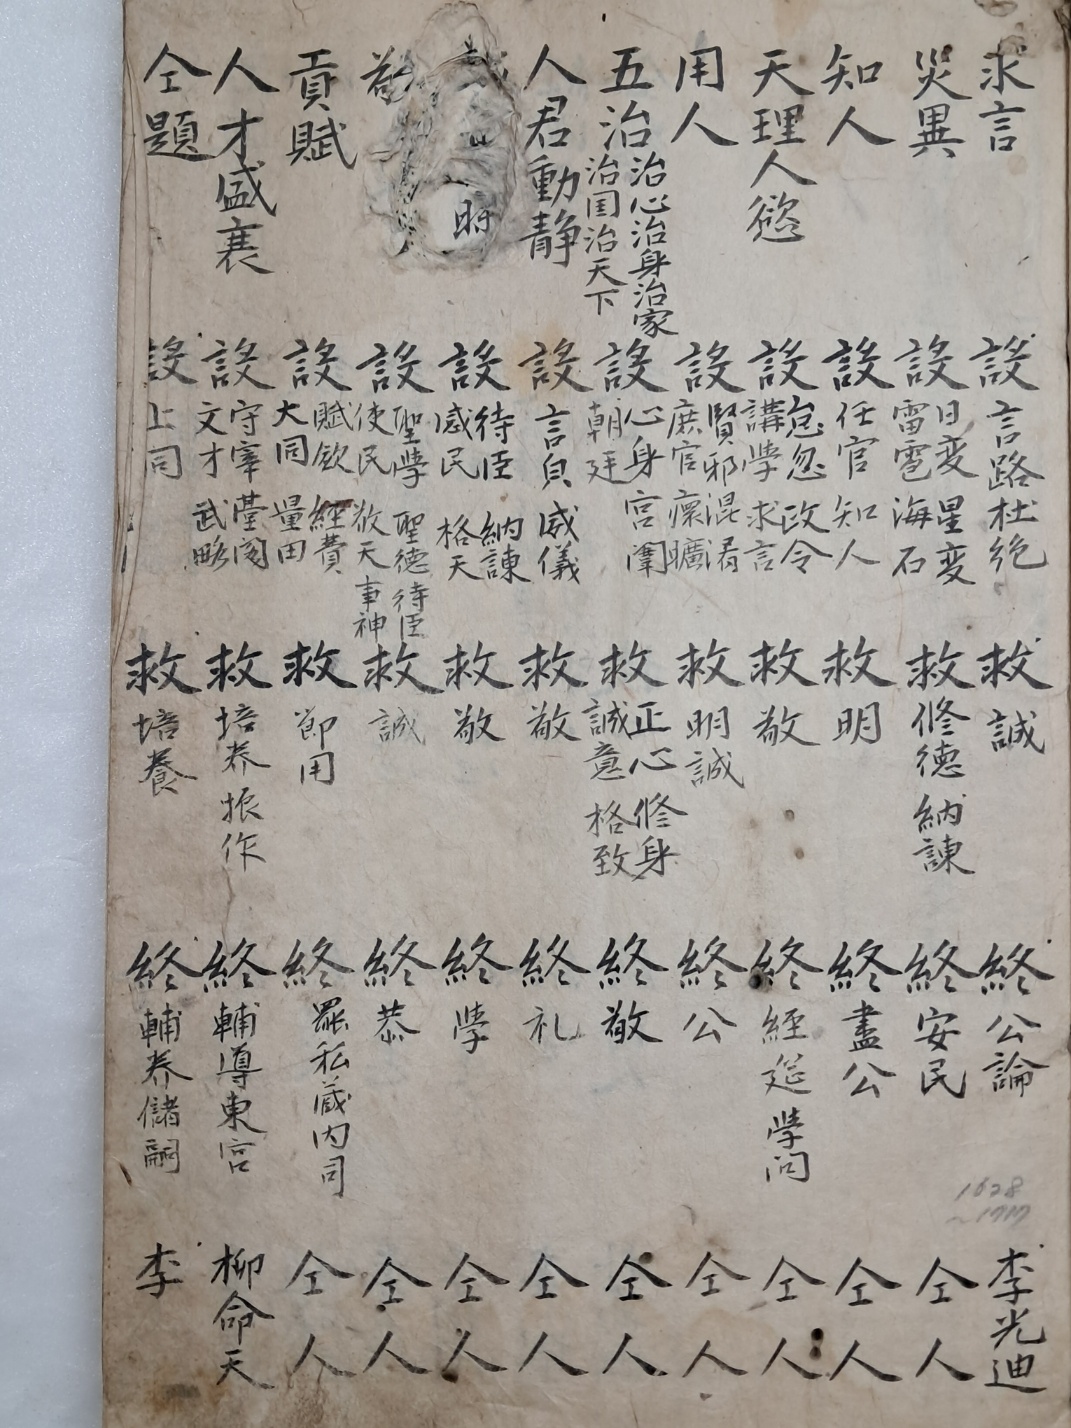 求言 設 言路杜絶 救 誠 終 公論 李光迪
災異 設 日変 星変 雷雹 海石 救 修德 納諫 終 安民 仝人
知人 設 任官 知人 救 明 終 盡公 仝人
天理人慾 設 怠忽 政令 講學 求言 救 敬 終 經筵 學问 仝人
用人 設 賢邪混淆 庶官瘝曠 救 明誠 終 公 仝人
五治 治心治身治家 治国治天下 設 心身 宮闈 朝廷 救 正心 修身 誠意 格致 終 敬 仝人
人君動静 設 言貝 威儀 救 敬 終 礼 仝人
時 設 待臣 納諫 感民 格天 救 敬 終 学 仝人
敬 設 聖學 聖德 待臣 使民 敬天 事神 救 誠 終 恭 仝人
貢賦 設 賦欽 經費 大同 量田 救 節用 終 罷私蔵内司 仝人
人才盛衰 設 守宰 臺閣 文才 武略 救 培养 振作 終 輔導東宮 柳命天
仝題 設 上司 救 培養 終 輔养儲嗣 李
1628
~1717